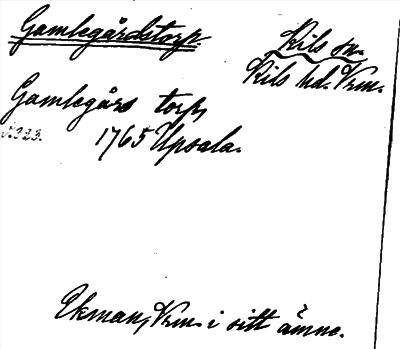 Gamlegårdstorp.
Kils sn.
Kils hd. Vrm.
Gamlegårs torp,
s. 323. 1765 Upsala.
Ekman, Vrm. i sitt ämne.